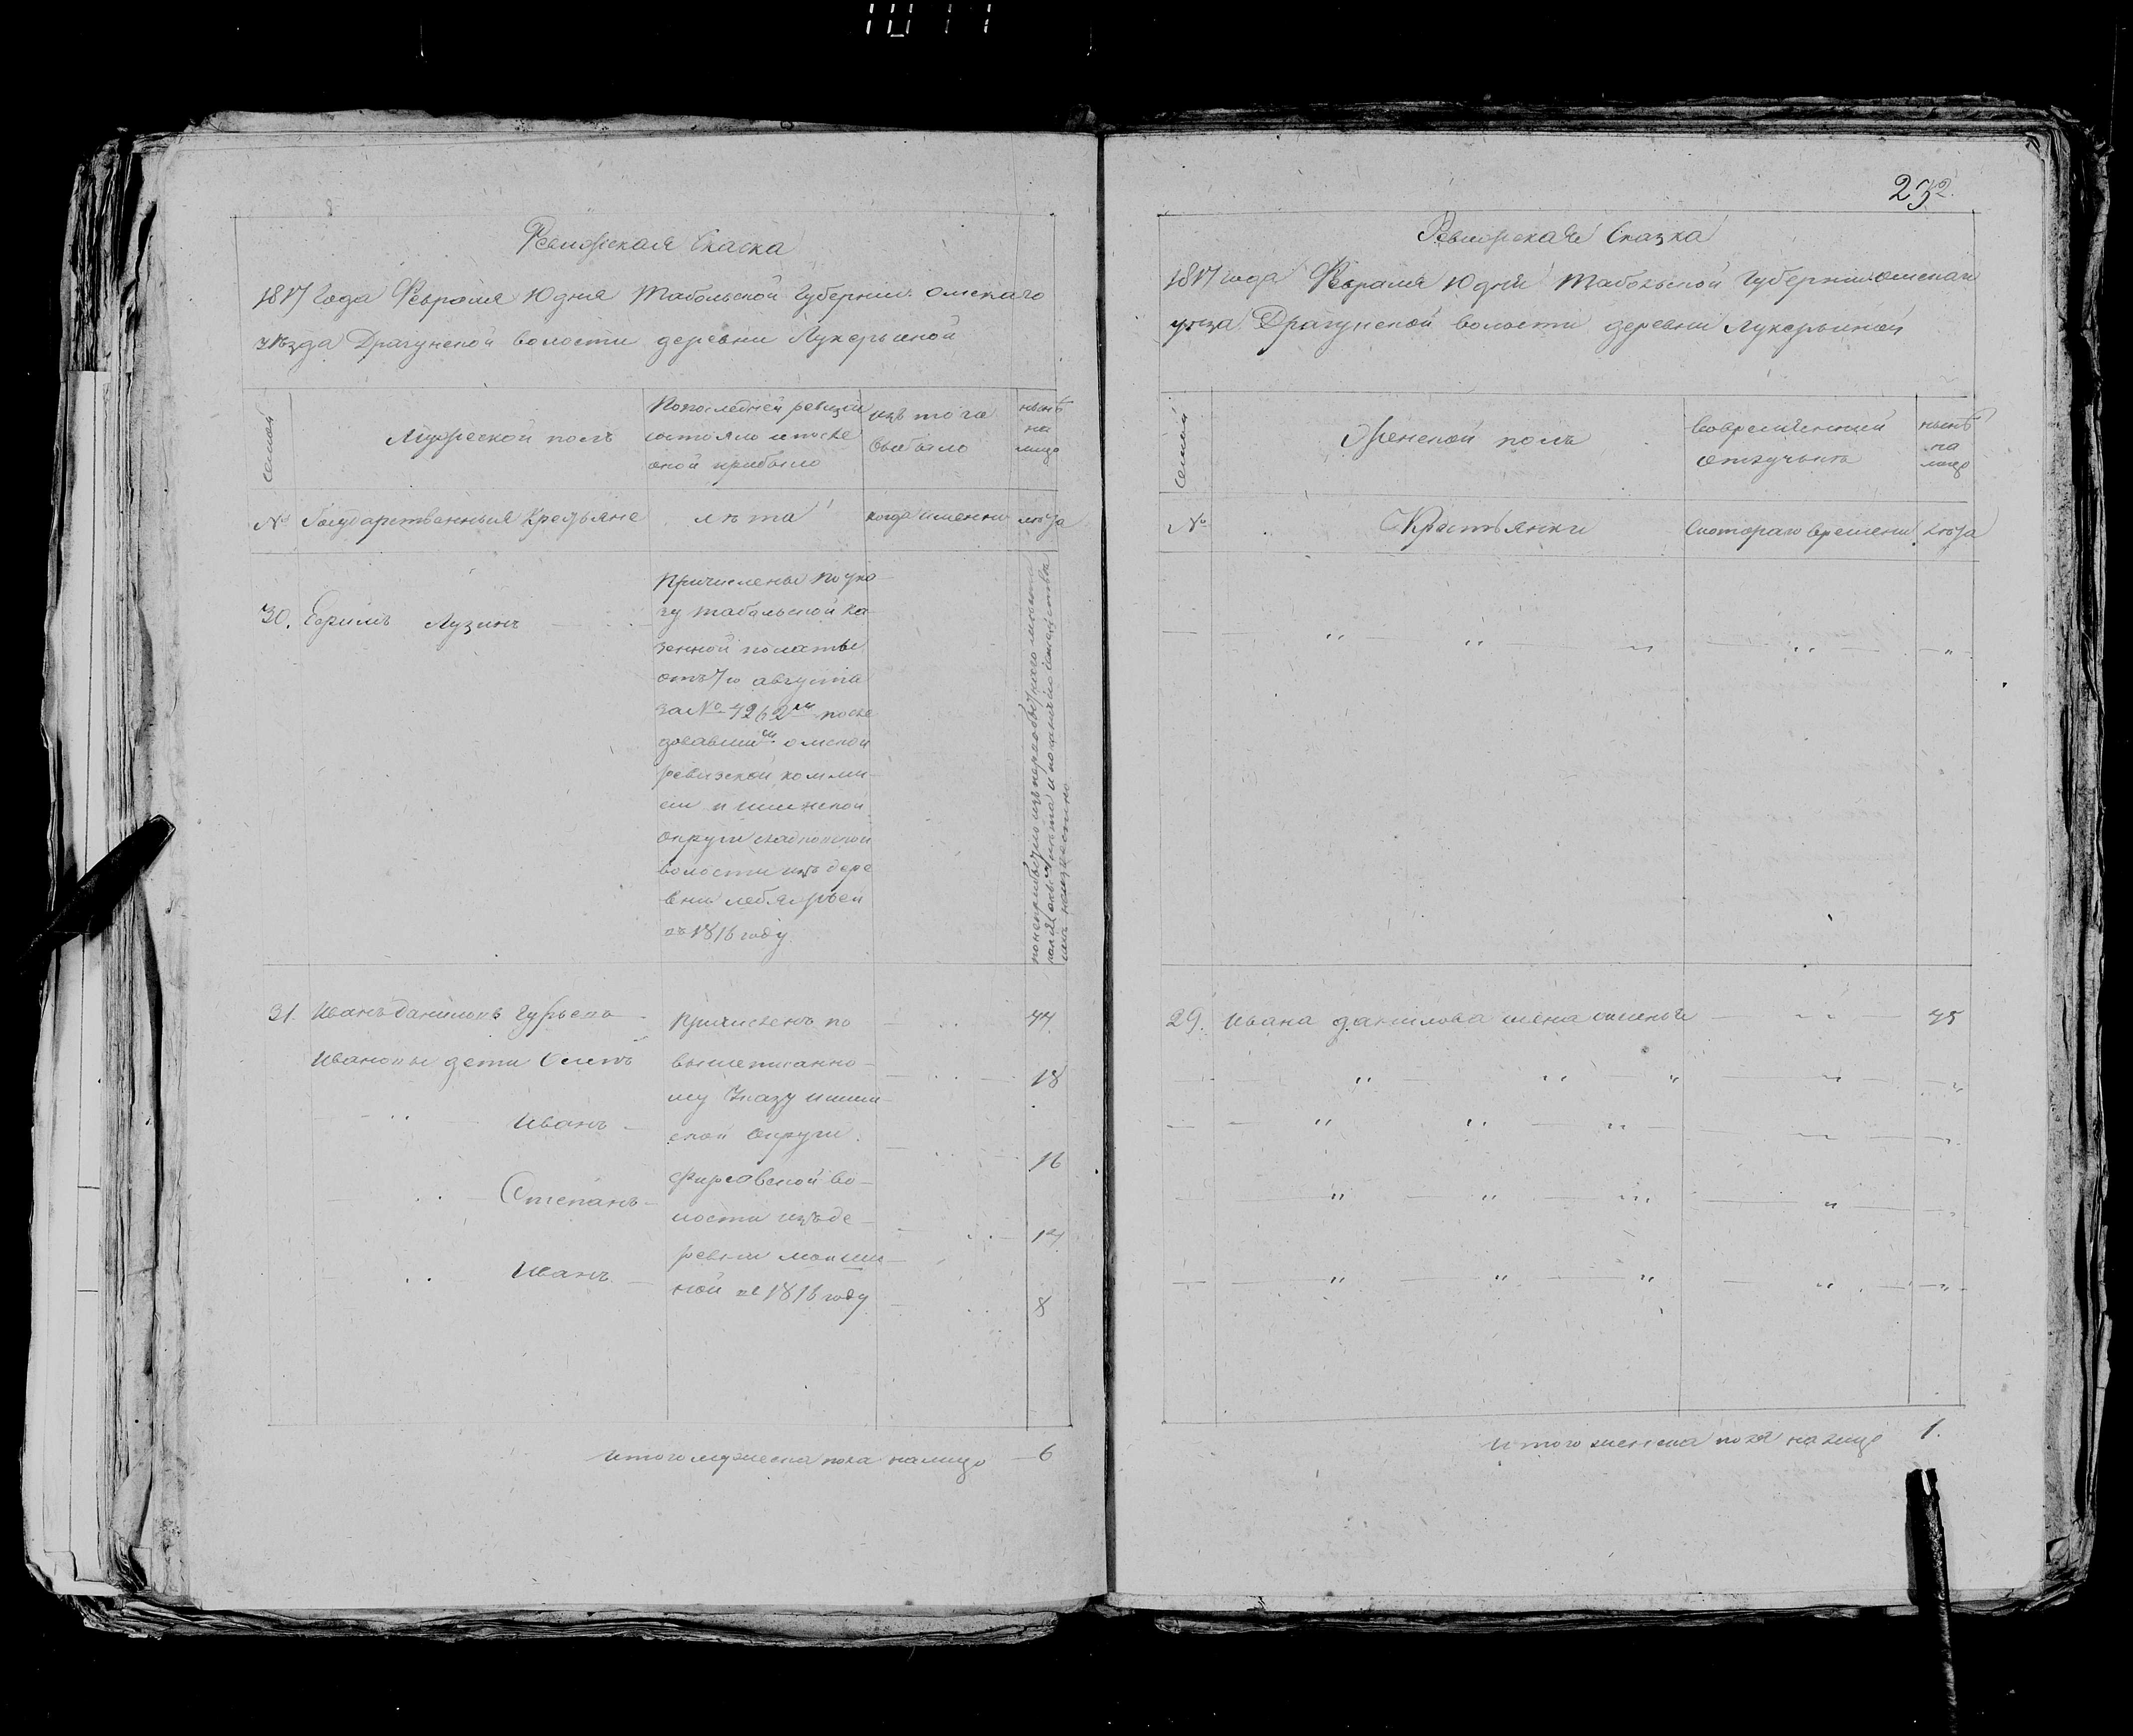 1011
Ревизская Скаска
1817 Года Февраля 10 дня Табольской Губернии Омскаго
уѣзда Драгунской волости деревни Лукерьиной
семьи
Мужеской полъ
По последней ревизіи
состояло и после
оной прибыло
изъ того
выбыло
нынѣ
на
лицо
№
Государственныя Крестьяне
лѣта
когда именно
лѣта
30.
Ефимъ Лузинъ
Причислены по ука
зу табольской ка
зенной полаты
отъ 7го августа
за № 4262м после
довавшим омской
ревизской комми
сіи и ишимской
округи
волости изъ дере
вни
въ 1816 году
31.
Иванъ Даниловъ Гурьевъ
Причисленъ по
44
Ивановы дети Осипъ
вышеписанно
18
му Указу ишим
Иванъ
ской округи
16
Степанъ
Фирсовской во
лости изъ де
14
ревни
Иванъ
ной въ 1816 году
8
итого мужеска пола налицо 6
232.
Ревизская Сказка
1817 года Февраля 10 дня Табольской Губернии омскаго
уезда Драгунской волости деревни Лукерьиной
семьи
Женской полъ
Вовременной
отлучьке
нынѣ
на
лицо
№
Крестьянки
Скотораго времени
лѣта
29.
Ивана Данилова жена
45
итого женска пола налицо 1.